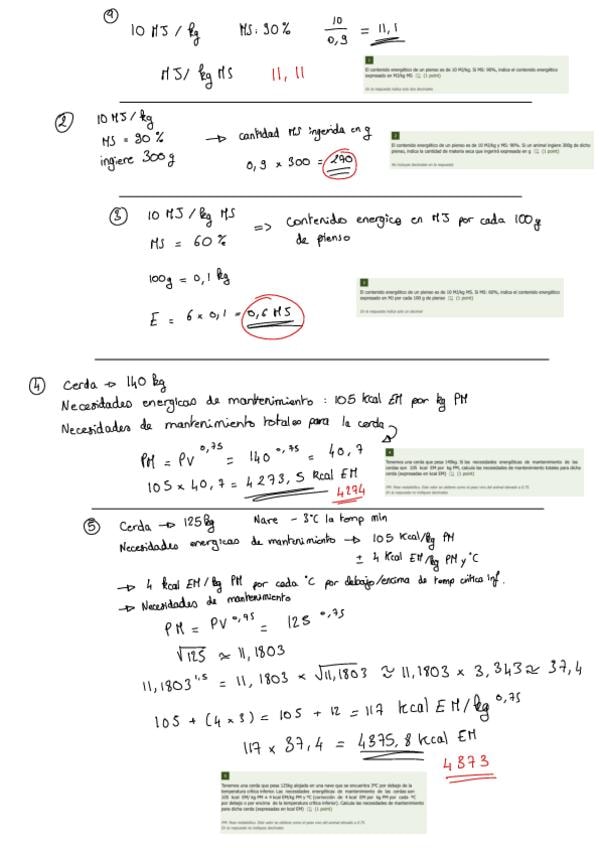 ①
10 MJ/kg MS: 90% 10/0,9 = 11,1
MJ/kg MS 11,11
1
El contenido energético de un pienso es de 10 MJ/kg. Si MS: 90%, indica el contenido energético
expresado en MJ/kg MS (1 point)
En la respuesta indica solo dos decimales
② 10 MJ/kg
MS = 90%
ingiere 300g
→ cantidad MS ingerida en g
0,9 x 300 = 270
2
El contenido energético de un pienso es de 10 MJ/kg y MS: 90%. Si un animal ingiere 300g de dicho
pienso, indica la cantidad de materia seca que ingerirá expresada en g (1 point)
No incluyas decimales en la respuesta
③ 10 MJ/kg MS
MS = 60%
=> Contenido energico en MJ por cada 100g
de pienso
100g = 0,1 kg
E = 6 x 0,1 = 0,6 MS
3
El contenido energético de un pienso es de 10 MJ/kg MS. Si MS: 60%, indica el contenido energético
expresado en MJ por cada 100 g de pienso (1 point)
En la respuesta indica solo un decimal
④ Cerda → 140 kg
Necesidades energicas de mantenimiento : 105 Kcal EM por kg PM
Necesidades de mantenimiento totales para la cerda
PM = PV^0,75 = 140^0,75 = 40,7
105 x 40,7 = 4273,5 Kcal EM
4274
4
Tenemos una cerda que pesa 140kg. Si las necesidades energéticas de mantenimiento de las
cerdas son 105 kcal EM por kg PM, calcula las necesidades de mantenimiento totales para dicha
cerda (expresadas en kcal EM) (1 point)
PM: Peso metabólico. Este valor se obtiene como el peso vivo del animal elevado a 0.75
En la respuesta no indiques decimales
⑤ Cerda → 125kg Nave - 3°C la temp min
Necesidades energicas de mantenimiento → 105 Kcal/kg PM
± 4 Kcal EM/kg PM y °C
→ 4 kcal EM/kg PM por cada °C por debajo/encima de temp critica inf.
→ Necesidades de mantenimiento
PM = PV^0,75 = 125^0,75
√125 ≈ 11,1803
11,1803^1,5 = 11,1803 x √11,1803 ≈ 11,1803 x 3,343 ≈ 37,4
105 + (4 x 3) = 105 + 12 = 117 kcal EM/kg^0,75
117 x 37,4 = 4375,8 Kcal EM
4373
5
Tenemos una cerda que pesa 125kg alojada en una nave que se encuentra 3ºC por debajo de la
temperatura crítica inferior. Las necesidades energéticas de mantenimiento de las cerdas son
105 kcal EM/ kg PM ± 4 kcal EM/kg PM y ºC (corrección de 4 kcal EM por kg PM por cada ºC
por debajo o por encima de la temperatura crítica inferior). Calcula las necesidades de mantenimiento
para dicha cerda (expresadas en kcal EM) (1 point)
PM: Peso metabólico. Este valor se obtiene como el peso vivo del animal elevado a 0.75
En la respuesta no indiques decimales